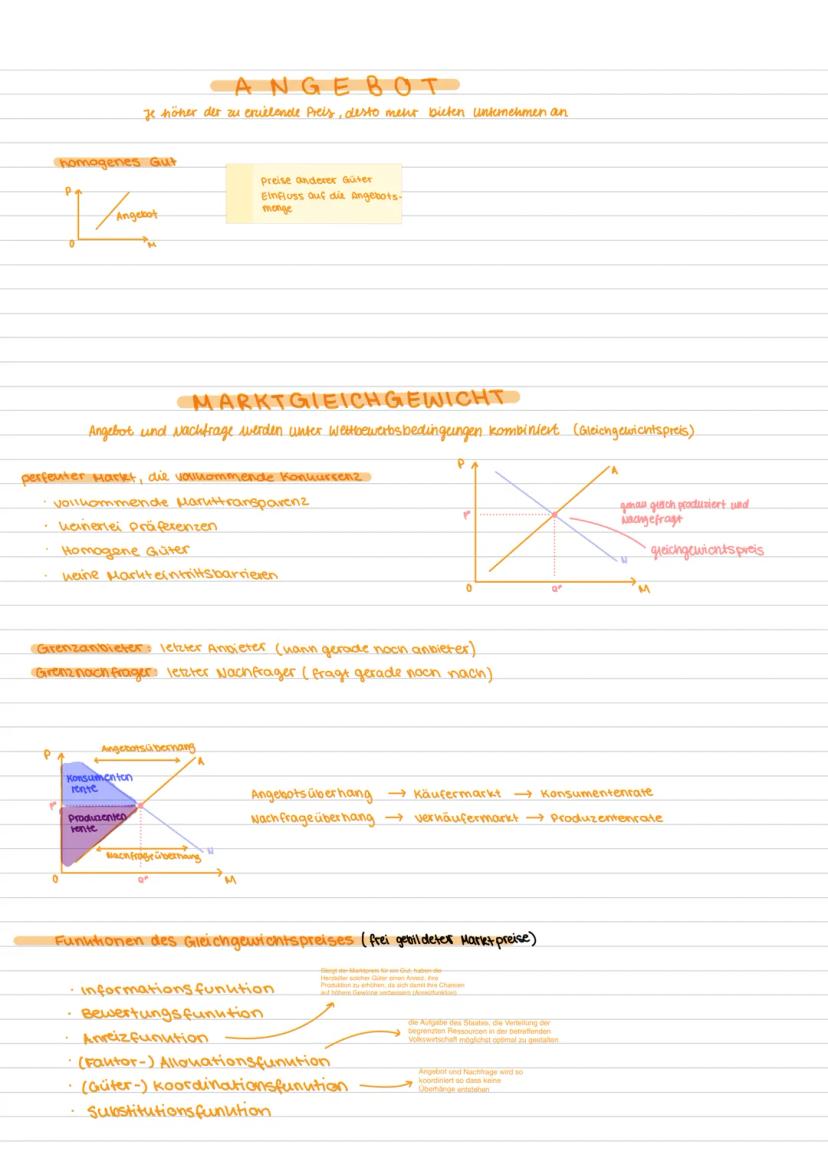 ANGEBOT
Je höher der zu erzielende Preis, desto mehr bieten Unternehmen an
homogenes Gut
Preise anderer Güter
Einfluss auf die Angebots-
menge
P
Angebot
0
M
MARKTGLEICHGEWICHT
Angebot und Nachfrage werden unter Wettbewerbsbedingungen kombiniert (Gleichgewichtspreis)
perfekter Markt, die vollkommende Konkurrenz
· vollkommende Markttransparenz
· keinerlei Präferenzen
· Homogene Güter
· keine Markteintrittsbarrieren
P
A
P*
genau gleich produziert und
Nachgefragt
gleichgewichtspreis
N
0
Q*
M
Grenzanbieter: letzter Anbieter (kann gerade noch anbieter)
Grenznachfrager: letzter Nachfrager (fragt gerade noch nach)
P
Angebotsüberhang
A
Konsumenten
rente
P*
Produzenten
rente
Nachfrageüberhang
N
0
Q*
M
Angebotsüberhang → Käufermarkt → Konsumentenrate
Nachfrageüberhang → Verkäufermarkt → Produzentenrate
Funktionen des Gleichgewichtspreises (frei gebildeter Marktpreise)
Steigt der Marktpreis für ein Gut, haben die
Hersteller solcher Güter einen Anreiz, ihre
Produktion zu erhöhen, da sich damit ihre Chancen
auf höhere Gewinne verbessern (Anreizfunktion)
· Informationsfunktion
· Bewertungsfunktion
· Anreizfunktion
die Aufgabe des Staates, die Verteilung der
begrenzten Ressourcen in der betreffenden
Volkswirtschaft möglichst optimal zu gestalten
· (Faktor-) Allokationsfunktion
· (Güter-) Koordinationsfunktion
Angebot und Nachfrage wird so
koordiniert so dass keine
Überhänge entstehen
· Substitutionsfunktion